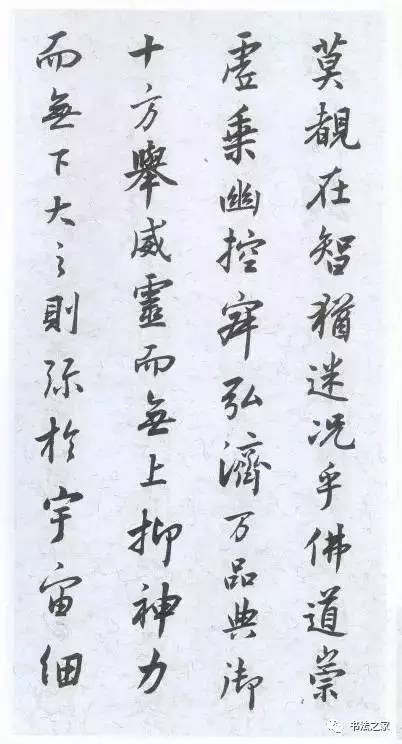 莫覩在智猶迷况乎佛道崇
虛乗幽控寂弘濟万品典御
十方舉威靈而無上抑神力
而無下大之則弥於宇宙細
书法之家